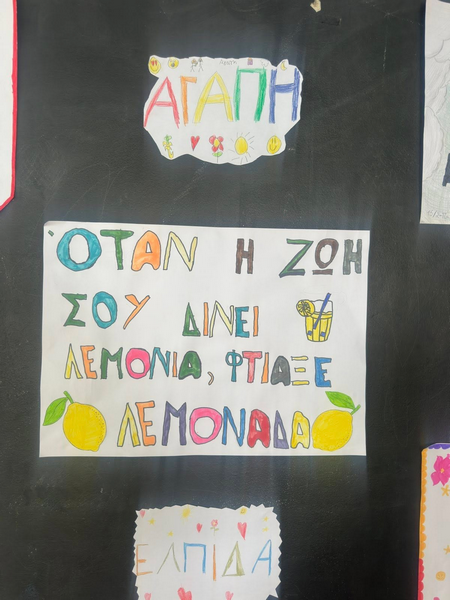 ΑΓΑΠΗ
Όταν Η ΖΩΗ
ΣΟΥ ΔΙΝΕΙ
ΛΕΜΟΝΙΑ, ΦΤΙΑΞΕ
ΛΕΜΟΝΑΔΑ
ΕΛΠΙΔΑ